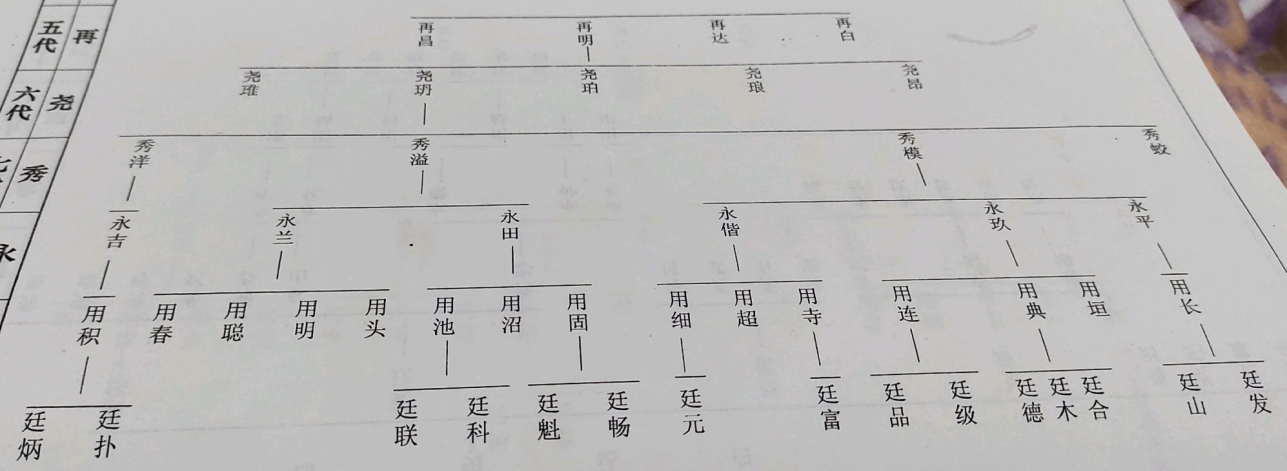 五代 再 再昌 再明 再达 再白
六代 尧 尧琟 尧玬 尧珀 尧琅 尧昂
秀 秀洋 秀溢 秀模 秀蛟
永 永吉 永兰 永田 永偕 永玖 永平
用积 用春 用聪 用明 用头 用池 用沼 用固 用细 用超 用寺 用连 用典 用垣 用长
廷炳 廷扑 廷联 廷科 廷魁 廷畅 廷元 廷富 廷品 廷级 廷德 廷木 廷合 廷山 廷发